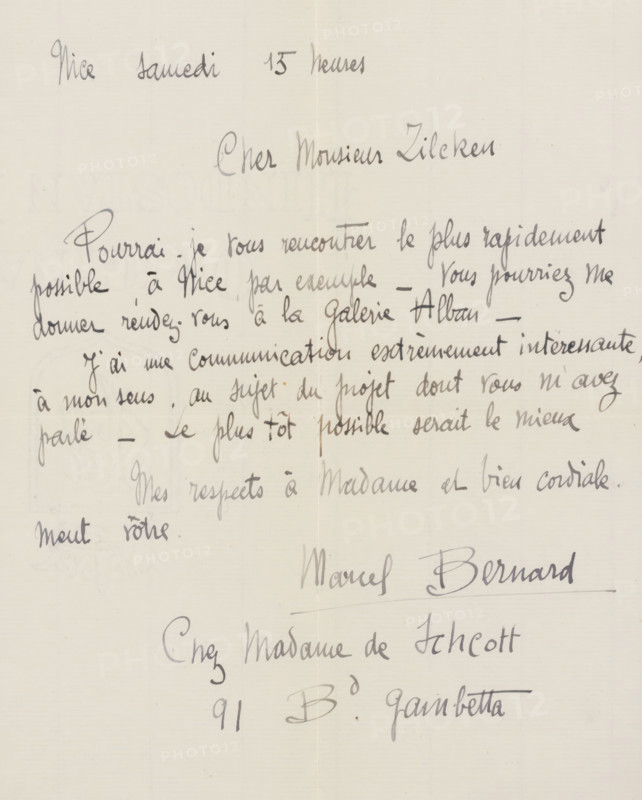 Nice samedi 15 heures
Cher Monsieur Zilcken
Pourrai-je vous rencontrer le plus rapidement
possible à Nice par exemple — Vous pourriez me
donner rendez-vous à la Galerie Alban —
J'ai une communication extrèmement intéressante,
à mon sens, au sujet du projet dont vous m'avez
parlé — Le plus tôt possible serait le mieux
Mes respects à Madame et bien cordiale-
ment vôtre.
Marcel Bernard
Chez Madame de Schcott
91 Bd. Gambetta
PHOTO12